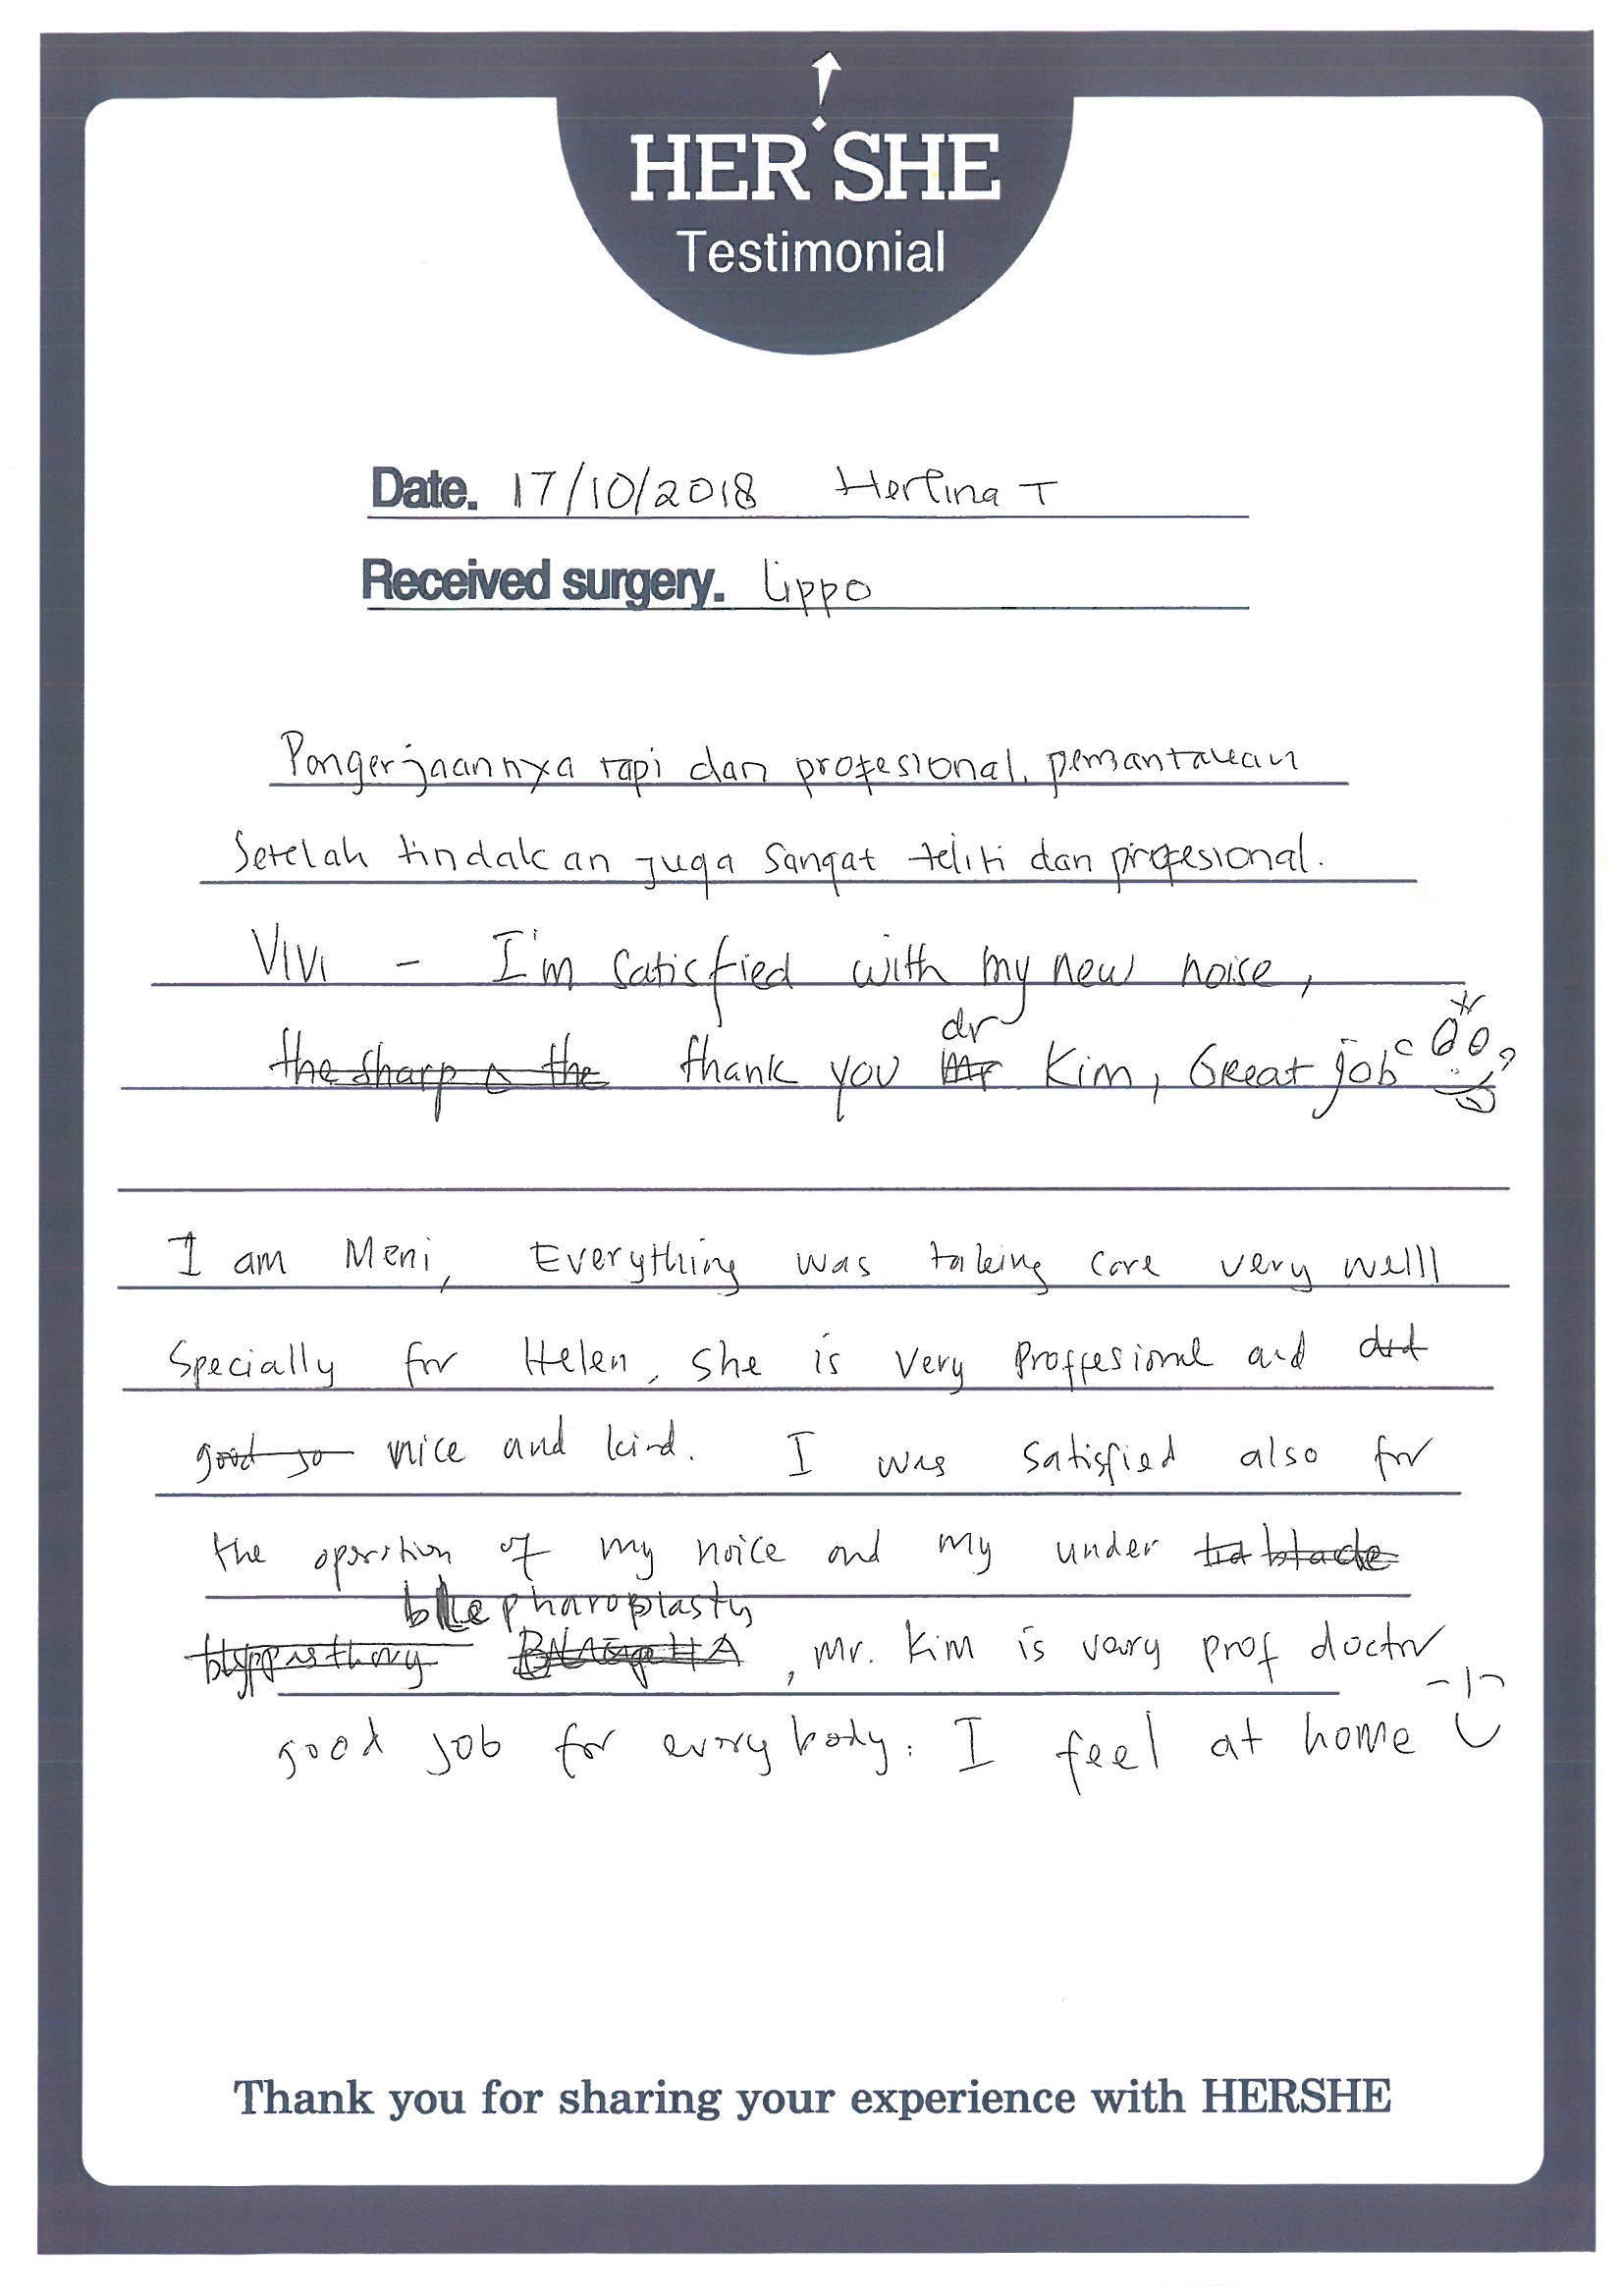 HER SHE
Testimonial
Date. 17/10/2018 Herlina T
Received surgery. Lippo
Pengerjaannya rapi dan profesional, pemantauan
Setelah tindakan juga sangat teliti dan profesional.
VIVI - I'm satisfied with my new noise,
dr
the sharp the thank you Mr Kim, Great job
I am Meni, Everything was taking care very welll
Specially for Helen, she is very proffesional and did
good jo nice and kind. I was satisfied also for
the operation of my noice and my under
blepharoplasty
, Mr. Kim is very prof doctor
good job for everybody. I feel at home
Thank you for sharing your experience with HERSHE